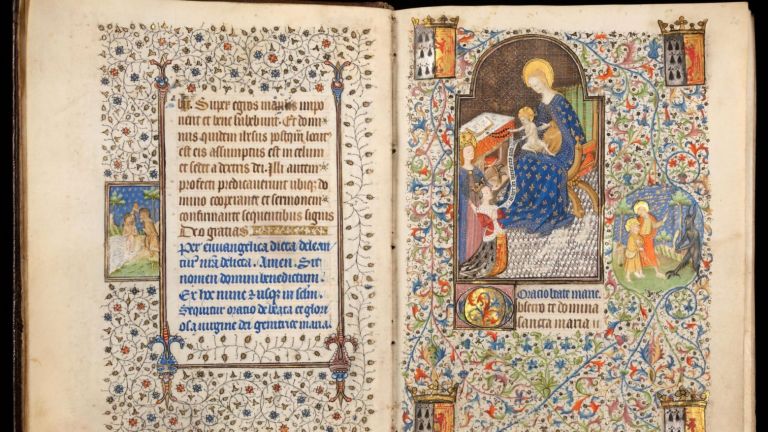 Super egros manus impo
nent et bene habebunt. Et domi
nus quidem ihesus postquam locut
est eis assumptus est in celum
et sedet a dextris dei. Illi autem
profecti predicaverunt ubique do
mino cooperante et sermonem
confirmante sequentibus signis
Deo gratias
Per euuangelica dicta delean
tur nra delicta. Amen. Sit
nomen domini benedictum
Ex hoc nunc et usque in sclm
Sequitur oratio de beata et glori
osa uirgine dei genitrice maria
Oratio beate marie
bsecro te domina
sancta maria